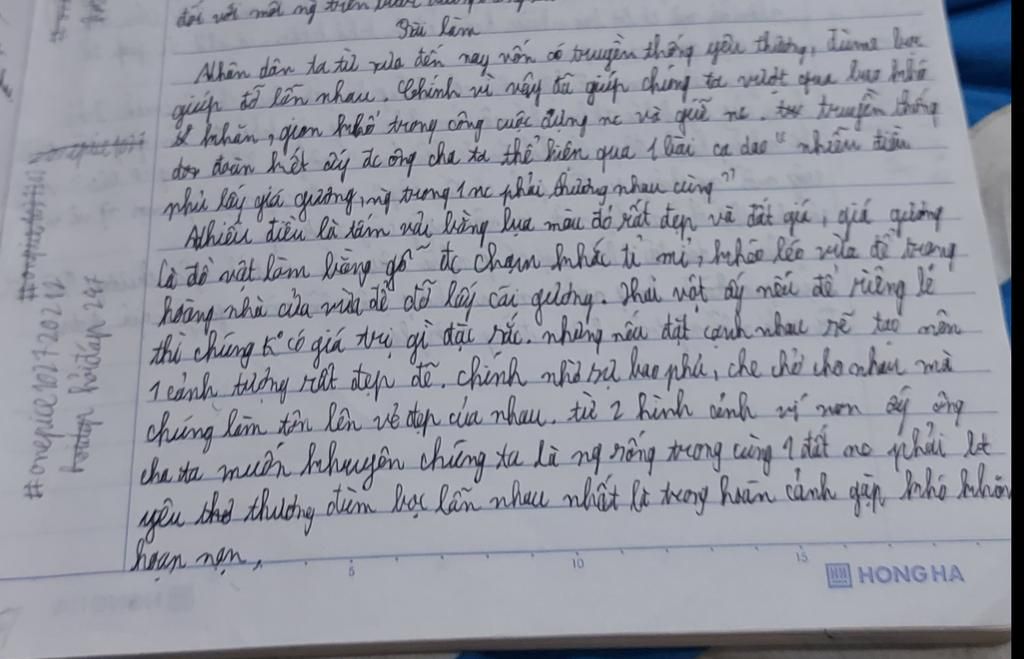 đối với mỗi ng trên
Bài làm
Nhân dân ta từ xưa đến nay vốn có truyền thống yêu thương, đùm bọc
giúp đỡ lẫn nhau. Chính vì vậy đã giúp chúng ta vượt qua bao khó
khăn, gian khổ trong công cuộc dựng nc và giữ nc. truyền thống
đoàn kết ấy đc ông cha ta thể hiện qua 1 bài ca dao "nhiễu điều
phủ lấy giá gương, ng trong 1 nc phải thương nhau cùng"
Nhiễu điều là tấm vải bằng lụa màu đỏ rất đẹp và đắt giá, giá gương
là đồ vật làm bằng gỗ đc chạm khắc tỉ mỉ, khéo léo vừa để trang
hoàng nhà cửa vừa để đỡ lấy cái gương. Hai vật ấy nếu để riêng lẻ
thì chúng k° có giá trị gì đặc sắc. nhưng nếu đặt cạnh nhau sẽ tạo nên
1 cảnh tượng rất đẹp đẽ. chính nhờ sự bao phủ, che chở cho nhau mà
chúng làm tôn lên vẻ đẹp của nhau. từ 2 hình ảnh ví von ấy ông
cha ta muốn khuyên chúng ta là ng sống trong cùng 1 đất nc phải bt
yêu thương đùm bọc lẫn nhau nhất là trong hoàn cảnh gặp khó khăn
hoạn nạn,
#onepice1072720212
hỏiđáp247
5 10 15
HONG HA